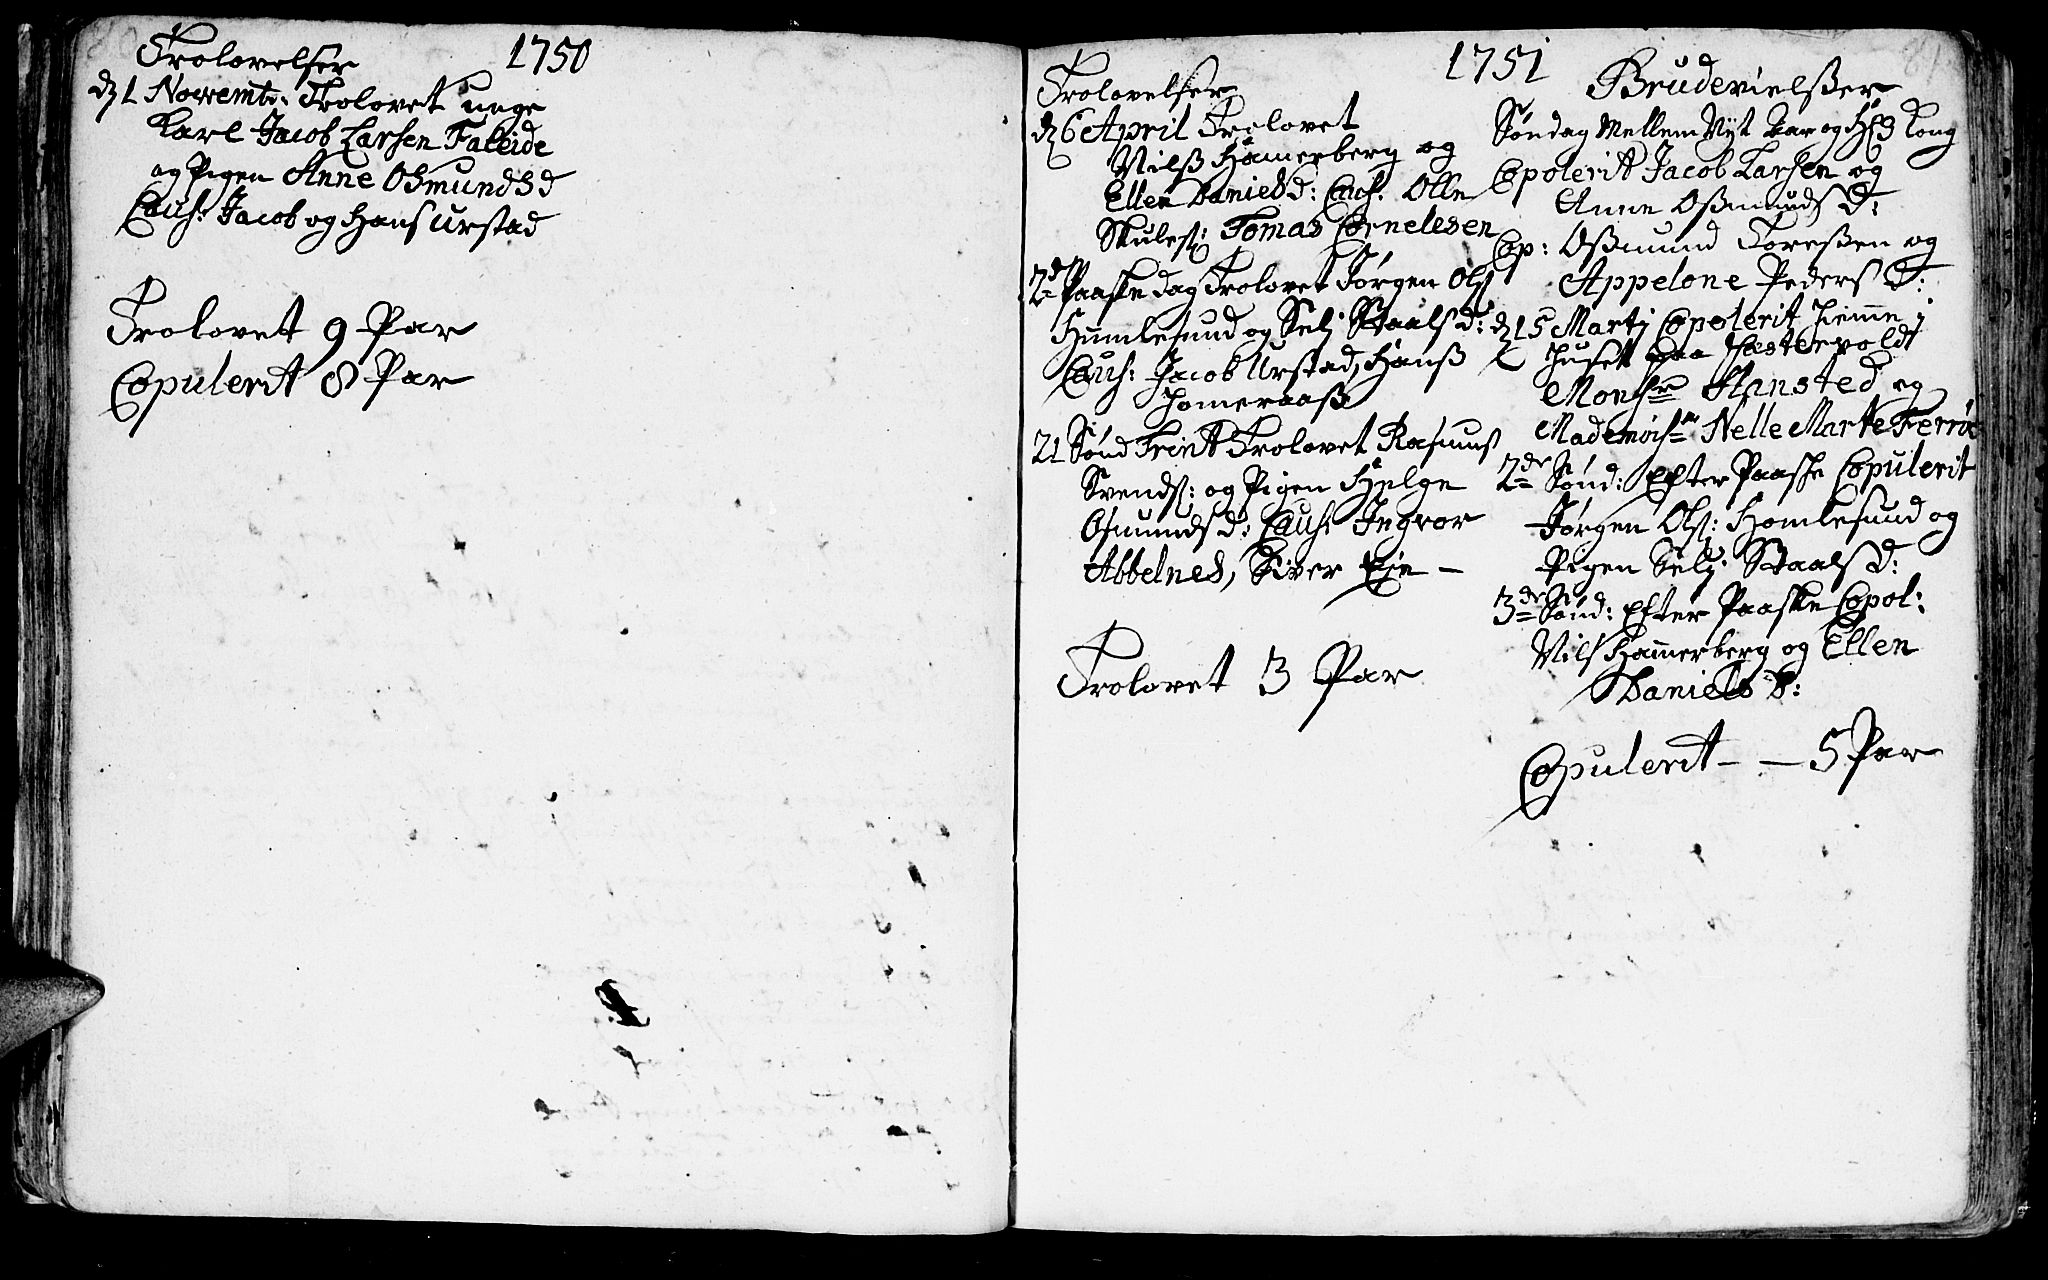 Trolovelser 1750
d 1 Novemb: Trolovet unge
Karl Jacob Larsen Faleide
og Pigen Anne Osmundsd
Caus: Jacob og Hans Urstad
Trolovet 9 Par
Copulerit 8 Par
1751
Trolovelser
d 6 April Trolovet
Nilss Hamerberg og
Ellen Danielsd: Caus: Olle
Skules: Tomas Cornelesen
2den Paaske dag Trolovet Jørgen Ols
Humlesund og Selj Staalsd:
Caus: Jacob Urstad, Hanss
Homeraass
21 Sønd Trint Trolovet Rasmus
Svends: og Pigen Helge
Osmundsd: Caus: Ingvor
Abbelnes, Siver Eje —
Trolovet 3 Par
Brudevielsser
Søndag Mellem Nyt Aar og H 3 Kong
Copolerit Jacob Larsen og
Anne Ossmundsd:
Cop: Ossmund Toressen og
Appelone Peders D:
d 15 Martj Copolerit hiemme i
Huset paa
Monsr Hansted og
Mademoisll Nelle Marte Ferrøe
2de Sønd: Efter Paaske Copulerit
Jørgen Ols: Homlesund og
Pigen Selj Staals D:
3de Sønd: Efter Paaske Copol:
Nils Hamerberg og Ellen
Daniels D:
Copulerit — — 5 Par